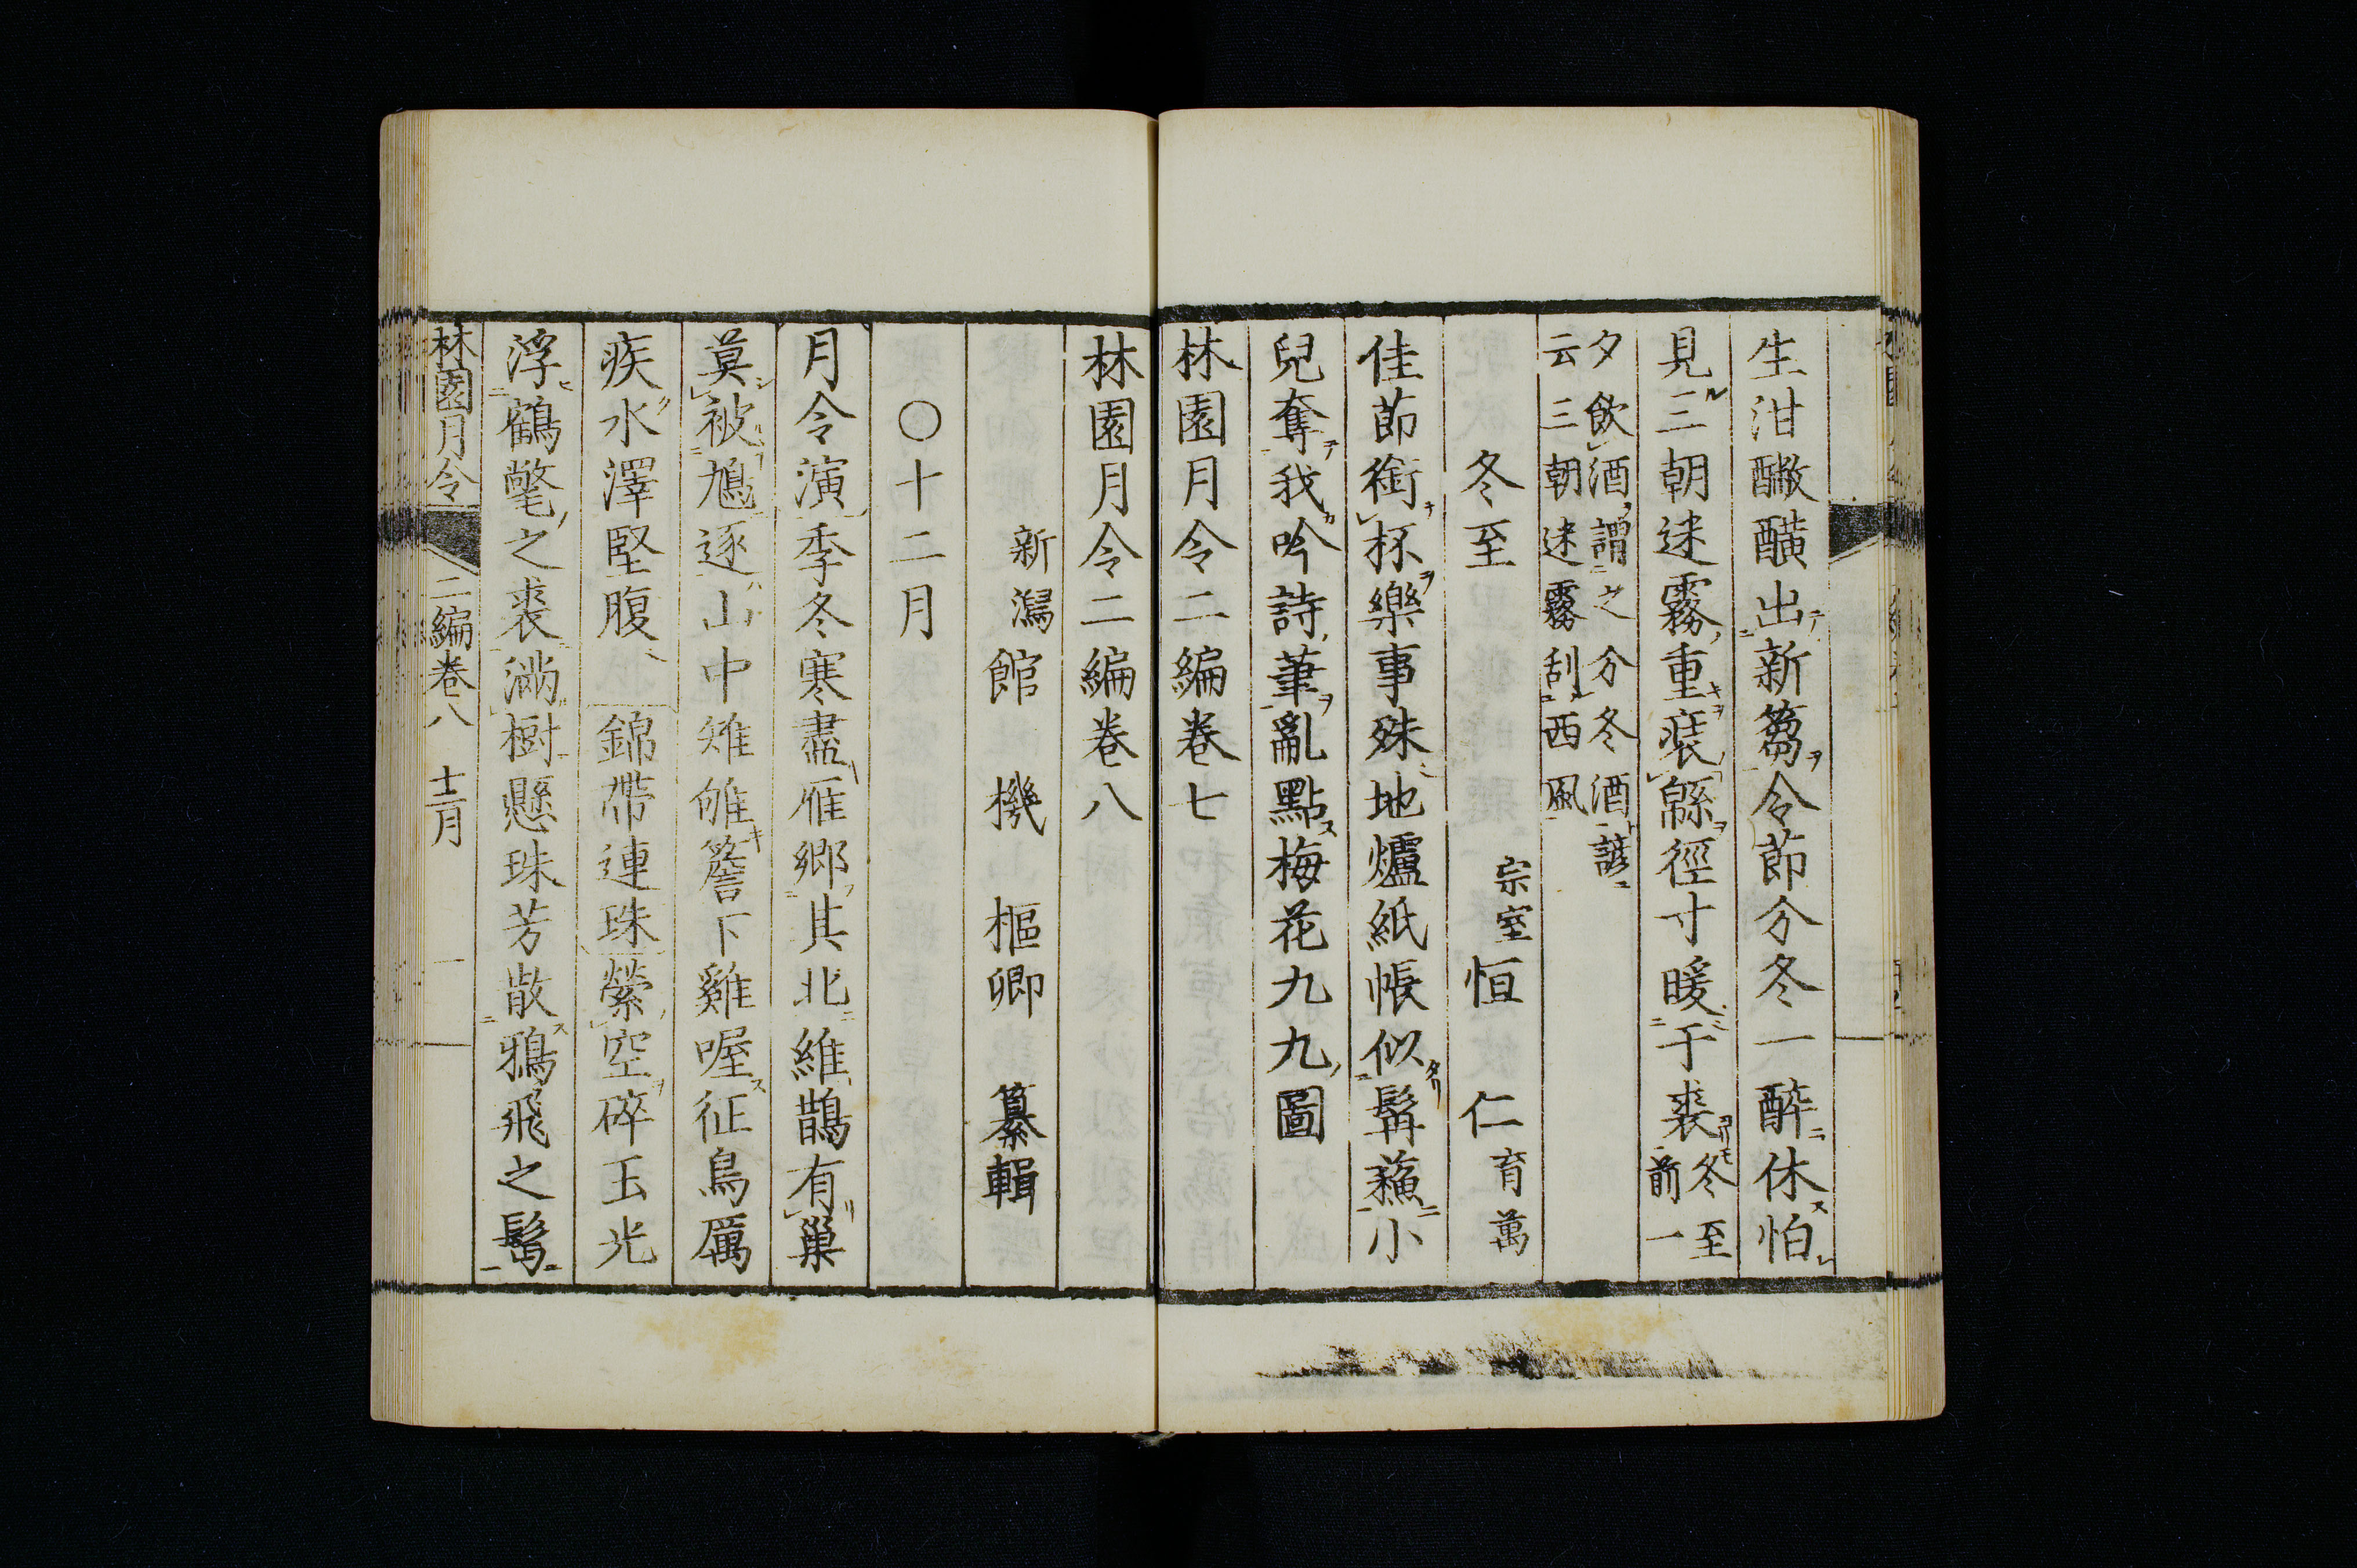 生泔醶醥出新篘令節分冬一醉休怕
見三朝迷霧重裘緜徑寸暖于裘冬至前一
夕飲酒謂之分冬酒諺
云三朝迷霧刮西風
冬至 宗室恒仁育萬
佳節銜杯樂事殊地爐紙帳似髯蘓小
兒奪我吟詩筆亂點梅花九九圖
林園月令二編卷七
林園月令二編卷八
新瀉 館 機 樞卿 纂輯
〇十二月
月令演季冬寒盡雁鄉其北維鵲有巢
莫被鳩逐山中雉雊簷下雞喔征鳥厲
疾水澤堅腹 錦帶連珠縈空碎玉光
浮鶴氅之裘滿樹懸珠芳散鴉飛之髻
林園月令 二編卷八 十二月 一